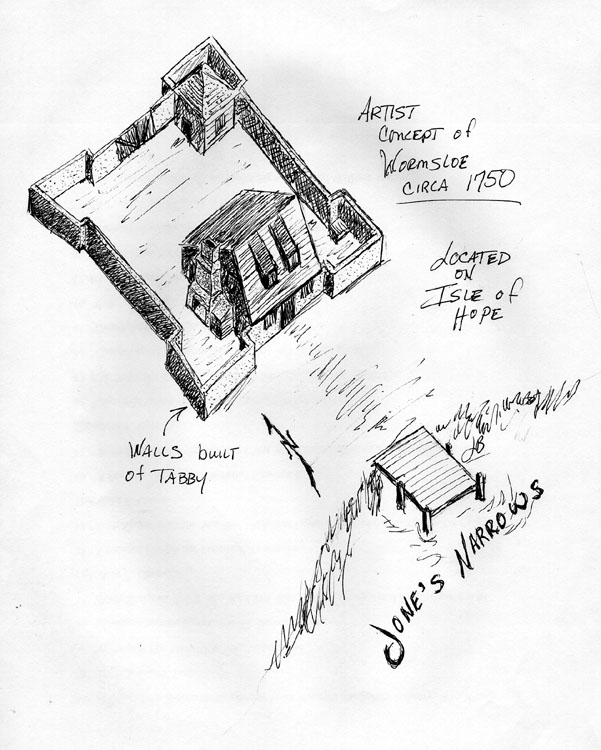 ARTIST
CONCEPT of
WORMSLOE
CIRCA 1750
LOCATED
ON
ISLE of
HOPE
WALLS built
of TABBY
N
JB
JONE'S NARROWS